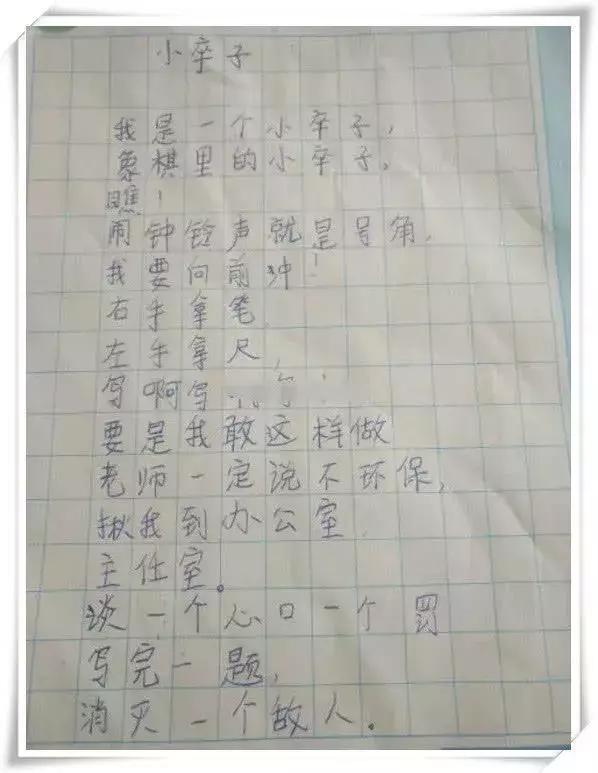 小卒子
我是一个小卒子,
象棋里的小卒子,
瞧!
闹钟铃声就是号角,
我要向前冲!
右手拿笔
左手拿尺
写啊写
要是我敢这样做
老师一定说不环保,
揪我到办公室
主任室。
谈一个心口一个罚
写完一题,
消灭一个敌人。